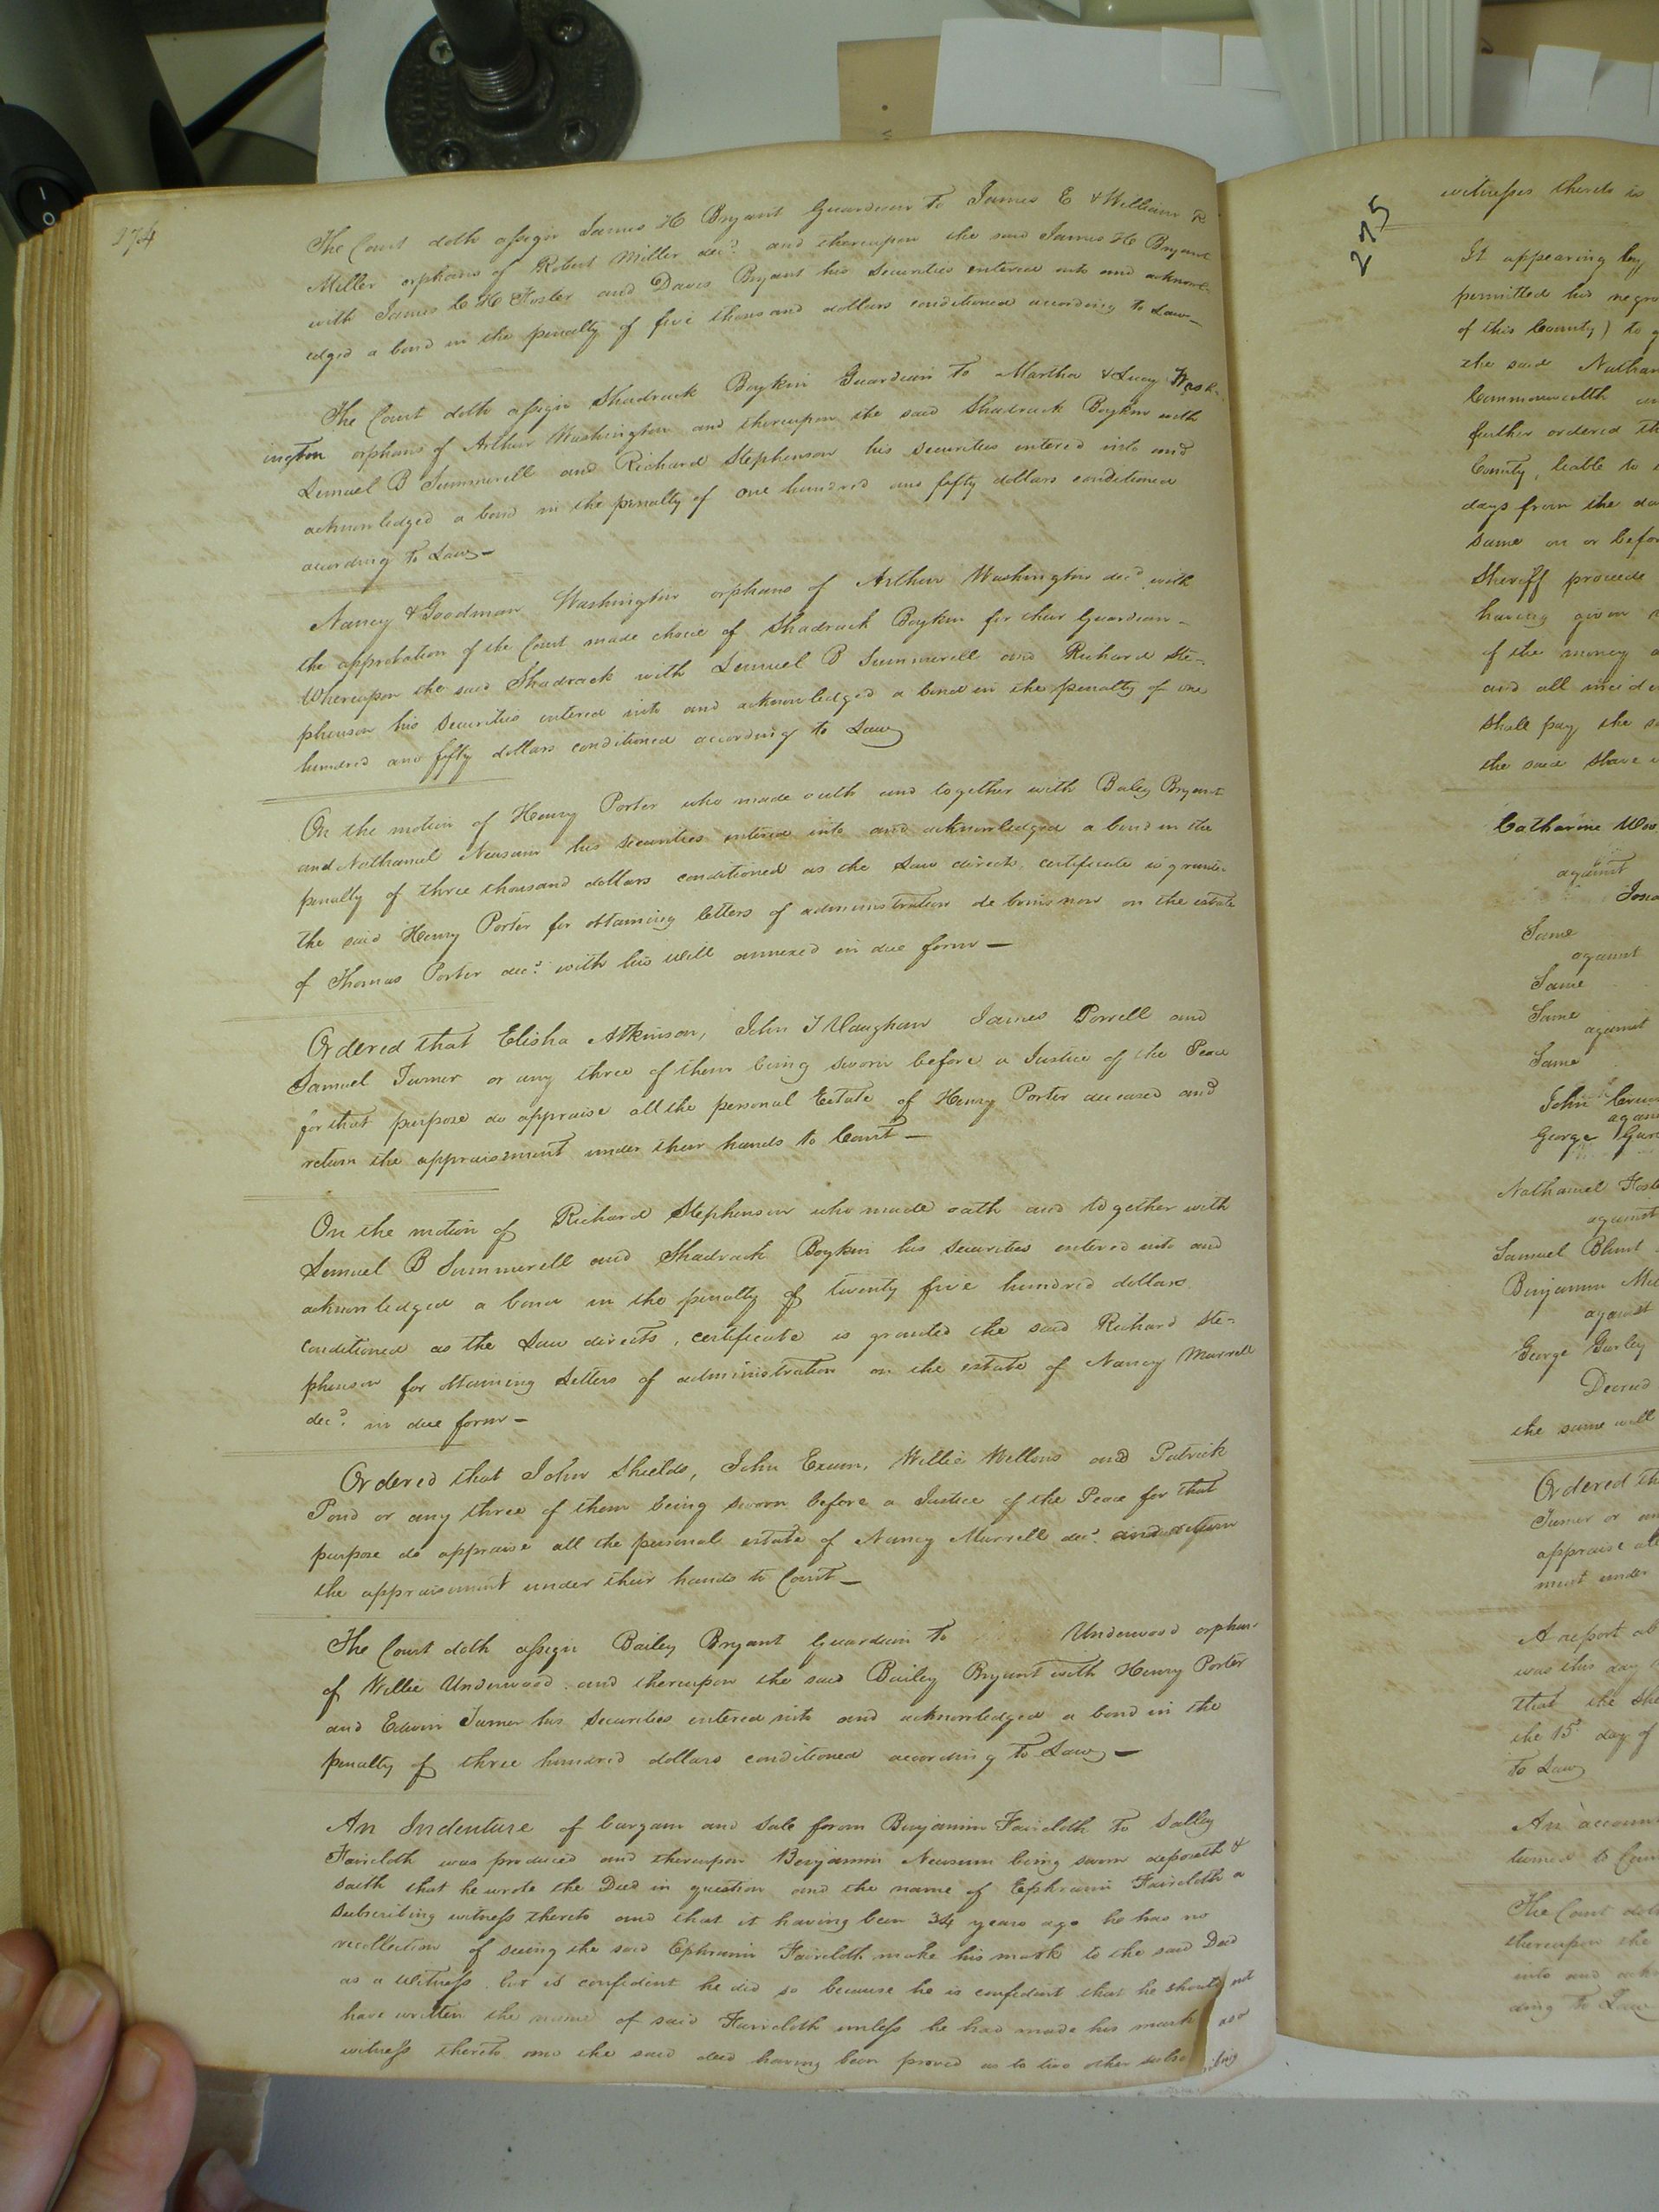 274
The Court doth assign James H Bryant Guardian to James E & William R
Miller orphans of Robert Miller decd. and thereupon the said James H Bryant
with James C H Foster and Davis Bryant his Securities entered into and acknowl-
edged a bond in the penalty of five thousand dollars conditioned according to Law—
The Court doth assign Shadrack Boykin Guardian to Martha & Lucy Wash-
ington orphans of Arthur Washington and thereupon the said Shadrack Boykin with
Lemuel B Summerell and Richard Stephenson his securities entered into and
acknowledged a bond in the penalty of one hundred and fifty dollars conditioned
according to Law—
Nancy & Goodman Washington orphans of Arthur Washington decd. with
the approbation of the Court made choice of Shadrack Boykin for their Guardian—
Whereupon the said Shadrack with Lemuel B Summerell and Richard Ste-
phenson his Securities entered into and acknowledged a bond in the penalty of one
hundred and fifty dollars conditioned according to Law
On the motion of Henry Porter who made oath and together with Baley Bryant
and Nathaniel Newsum his securities entered into and acknowledged a bond in the
penalty of three thousand dollars conditioned as the Law directs certificate is grante
the said Henry Porter for obtaining letters of administration de bonis non on the estate
of Thomas Porter decd. with his Will annexed in due form—
Ordered that Elisha Atkinson, John T Vaughan James Powell and
Samuel Turner or any three of them being sworn before a Justice of the Peace
for that purpose do appraise all the personal Estate of Henry Porter deceased and
return the appraisement under their hands to Court—
On the motion of Richard Stephenson who made oath and together with
Lemuel B Summerell and Shadrack Boykin his Securities entered into and
acknowledged a bond in the penalty of twenty five hundred dollars
conditioned as the Law directs, certificate is granted the said Richard Ste-
phenson for obtaining Letters of administration on the estate of Nancy Murrell
decd. in due form—
Ordered that John Shields, John Exum, Willie Wellons and Patrick
Pond or any three of them being sworn before a Justice of the Peace for that
purpose do appraise all the personal estate of Nancy Murrell decd. and return
the appraisement under their hands to Court—
The Court doth assign Bailey Bryant Guardian to Underwood orphan
of Willie Underwood and thereupon the said Bailey Bryant with Henry Porter
and Edwin Turner his Securities entered into and acknowledged a bond in the
penalty of three hundred dollars conditioned according to Law—
An Indenture of bargain and sale from Benjamin Faircloth to Salley
Faircloth was produced and thereupon Benjamin Newsum being sworn deposeth &
saith that he wrote the Deed in question and the name of Ephraim Faircloth a
subscribing witness thereto and that it having been 34 years ago he has no
recollection of seeing the said Ephraim Faircloth make his mark to the said Deed
as a witness but is confident he did so because he is confident that he should not
have written the name of said Faircloth unless he had made his mark as a
witness thereto and the said deed having been proved as to two other subscribing
275
witnesses thereto is
It appearing by
permitted his negro
of this County) to g
the said Nathan
Commonwealth
further ordered th
County, liable to
days from the da
same on or befor
Sheriff proceede
having given
of the money
and all incide
shall pay the s
the said Slave
Catharine
against
Same
against
Same
Same
against
Same
John
against
George Gur
Nathaniel Foste
against
Samuel Blunt
Benjamin
against
George Gurley
Decreed
the same will
Ordered th
Turner or an
appraise all
ment under
A report
was this day
that the She
the 15 day of
to Law
An account
turned to Cour
The Court doth
thereupon the
into and ackn
ding to Law